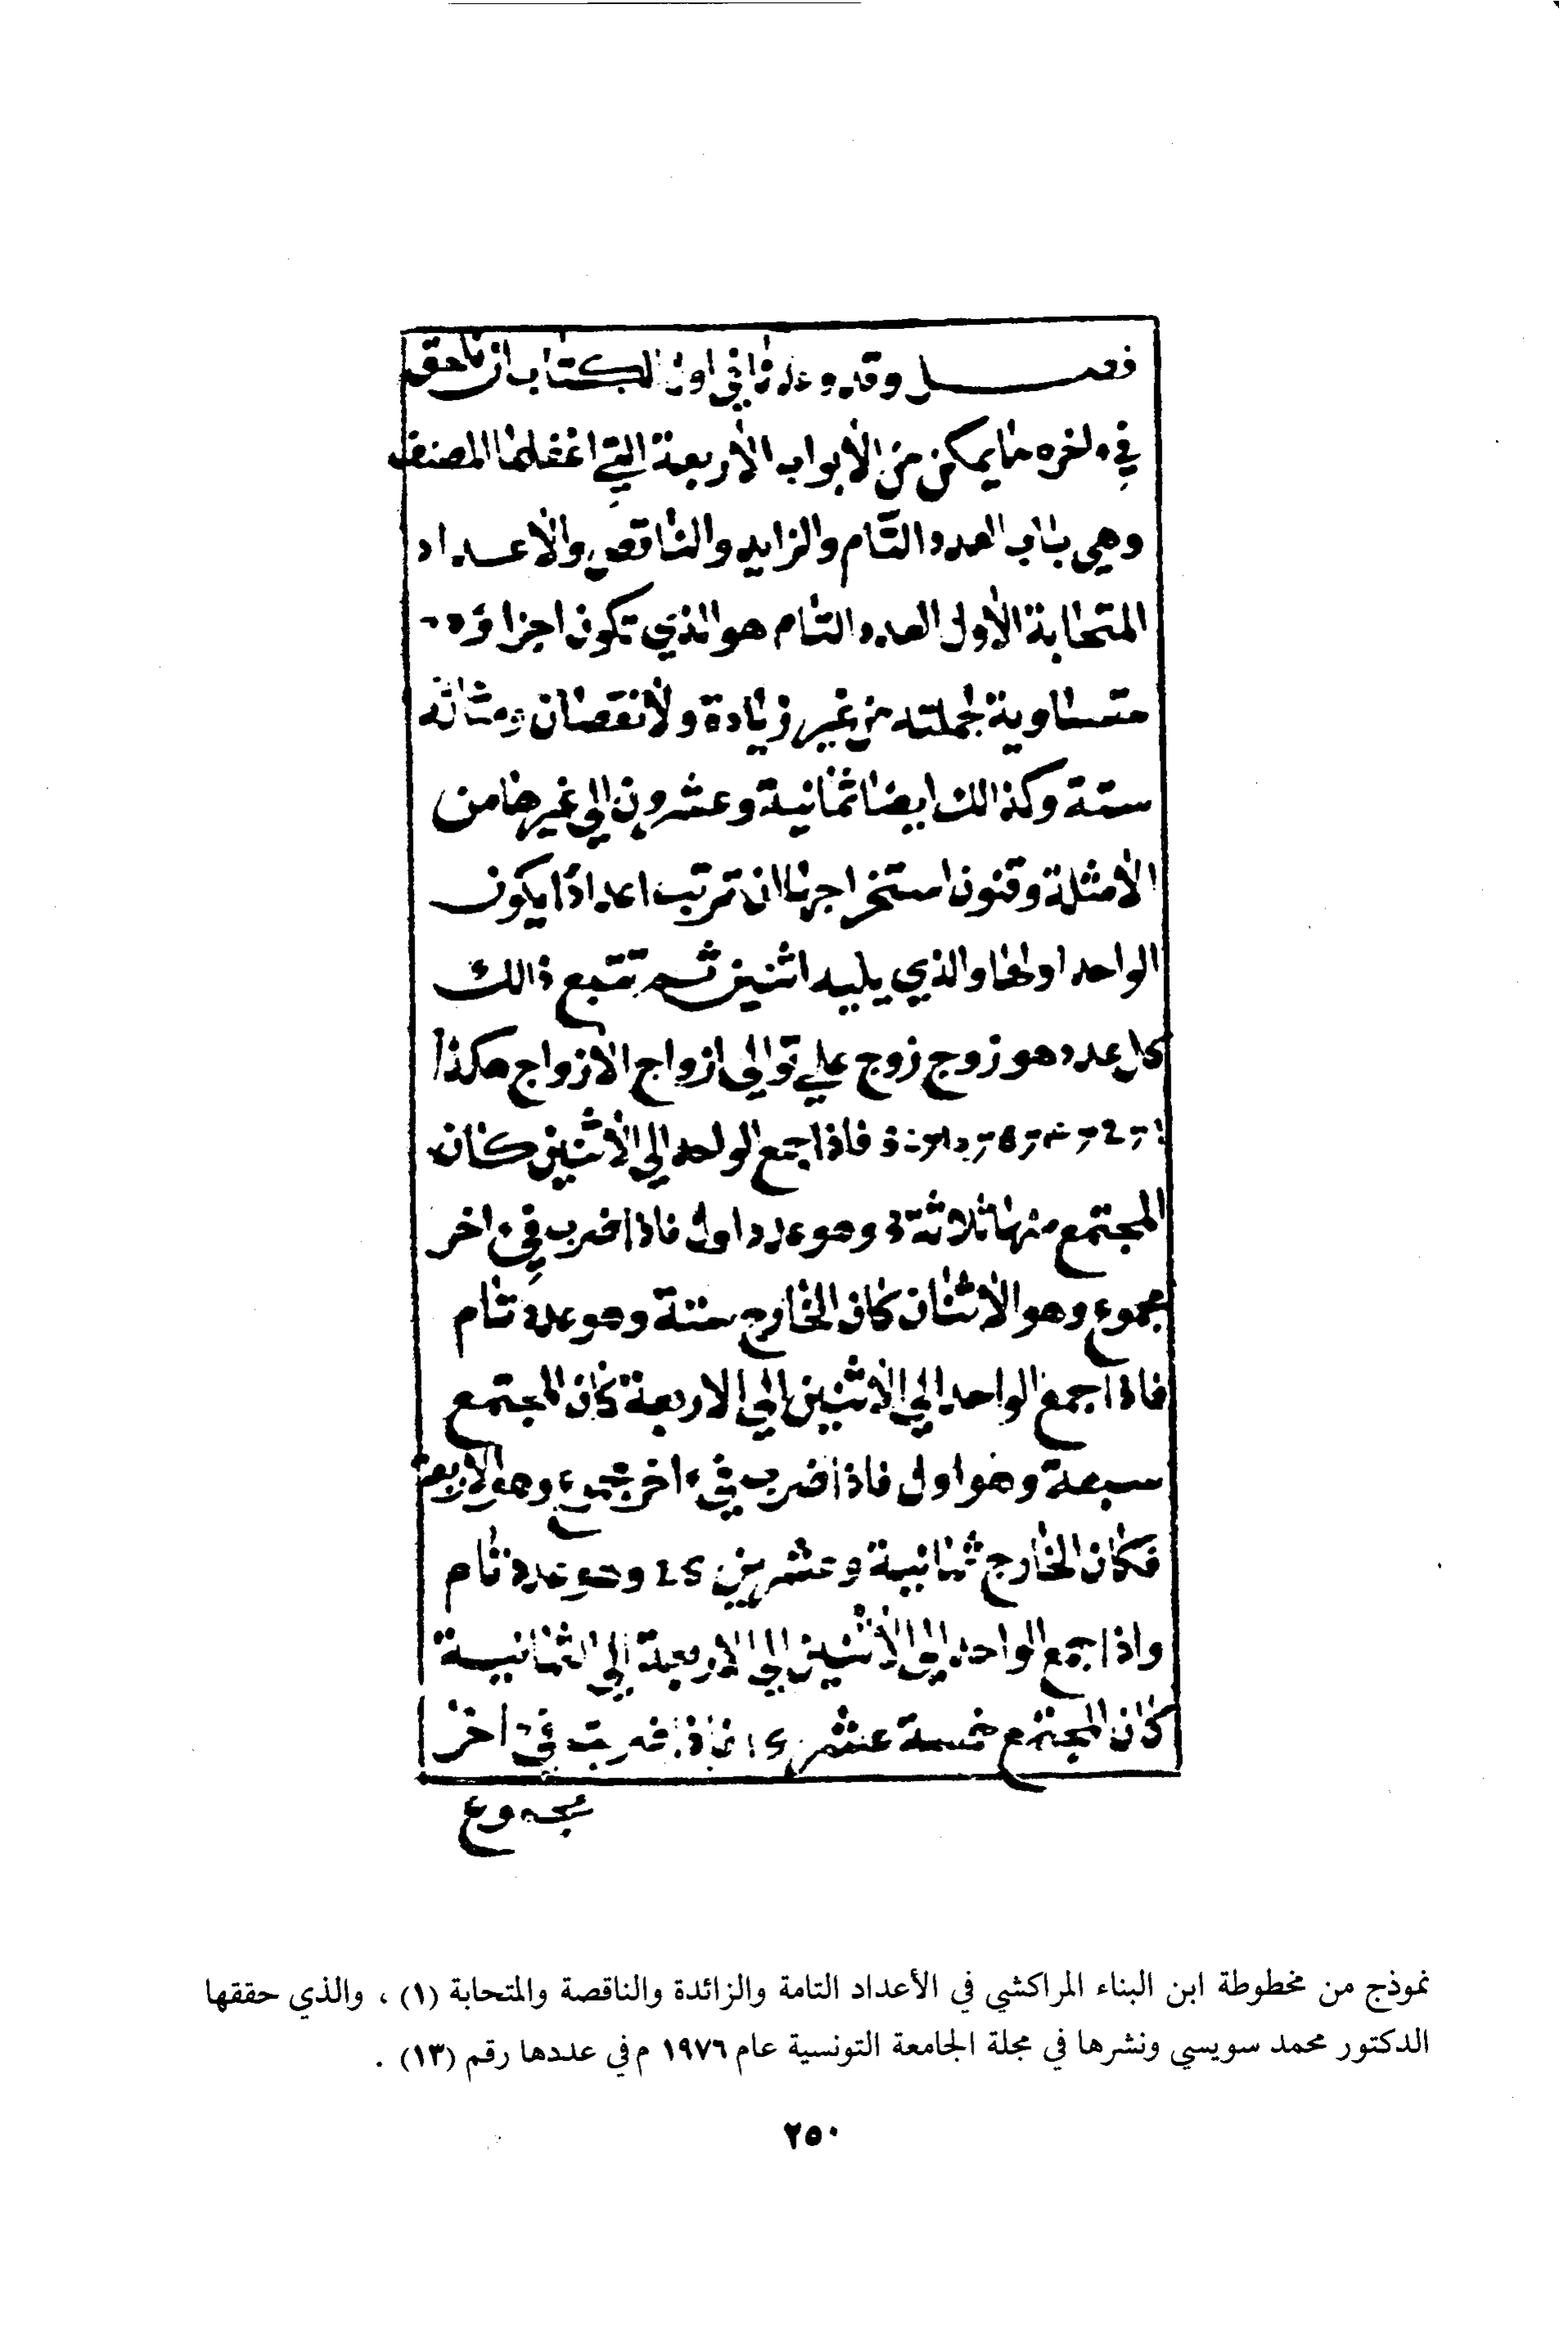 فصل وقد وعدنا في اول الكتاب ان نلحق
في ءاخره ما يمكن من الأبواب الأربعة التي اغفلها المصنف
وهي باب العدد التام والزايد والناقص والأعداد
المتحابة الأول العدد التام هو الذي تكون اجزاؤه
متساوية لجملته من غير زيادة ولا نقصان ومثاله
ستة وكذالك ايضا ثمانية وعشرون الي غيرها من
الأمثلة وقنون استخراجها ان ترتب اعدادًا يكون
الواحد اولها والذي يليه اثنين ثم تتبع ذالك
كل عدد هو زوج زوج علي توالي ازواج الازواج هكذا
فاذا جمع الواحد الي الأثنين كان
المجتمع منها ثلاثة وهو عدد اول فاذا ضرب في ءاخر
مجموع وهو الأثنان كان الخارج ستة وهو عدد تام
فاذا جمع الواحد الي الأثنين الي الاربعة كان المجتمع
سبعة وهو اول فاذا ضرب في ءاخر مجموع وهو الاربعة
فكان الخارج ثمانية وعشرين وهو عدد تام
واذا جمع الواحد الي الأثنين الي الاربعة الي الثمانية
كان المجتمع خمسة عشر فاذا ضربت في ءاخر
مجموع
نموذج من مخطوطة ابن البناء المراكشي في الأعداد التامة والزائدة والناقصة والمتحابة (١) ، والذي حققها
الدكتور محمد سويسي ونشرها في مجلة الجامعة التونسية عام ١٩٧٦ م في عددها رقم (١٣) .
٢٥٠